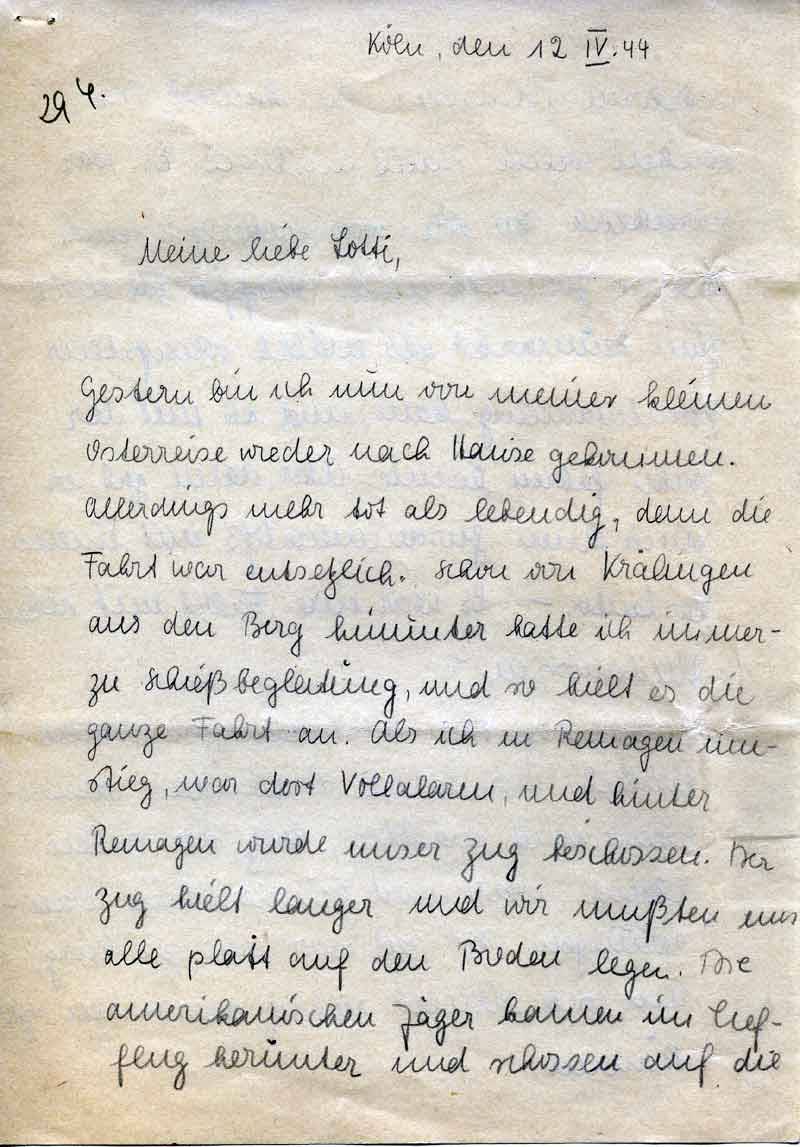 Köln, den 12 IV. 44
29 4.
Meine liebe Lotti,
Gestern bin ich nun von meiner kleinen
Osterreise wieder nach Hause gekommen.
Allerdings mehr tot als lebendig, denn die
Fahrt war entsetzlich. Schon von Kralingen
aus den Berg hinunter hatte ich immer-
zu Schießbegleitung, und so hielt es die
ganze Fahrt an. Als ich in Remagen um-
stieg, war dort Vollalarm, und hinter
Remagen wurde unser Zug beschossen. Der
Zug hielt langer und wir mußten uns
alle platt auf den Boden legen. Die
amerikanischen Jäger kamen im Tief-
flug herunter und schossen auf die